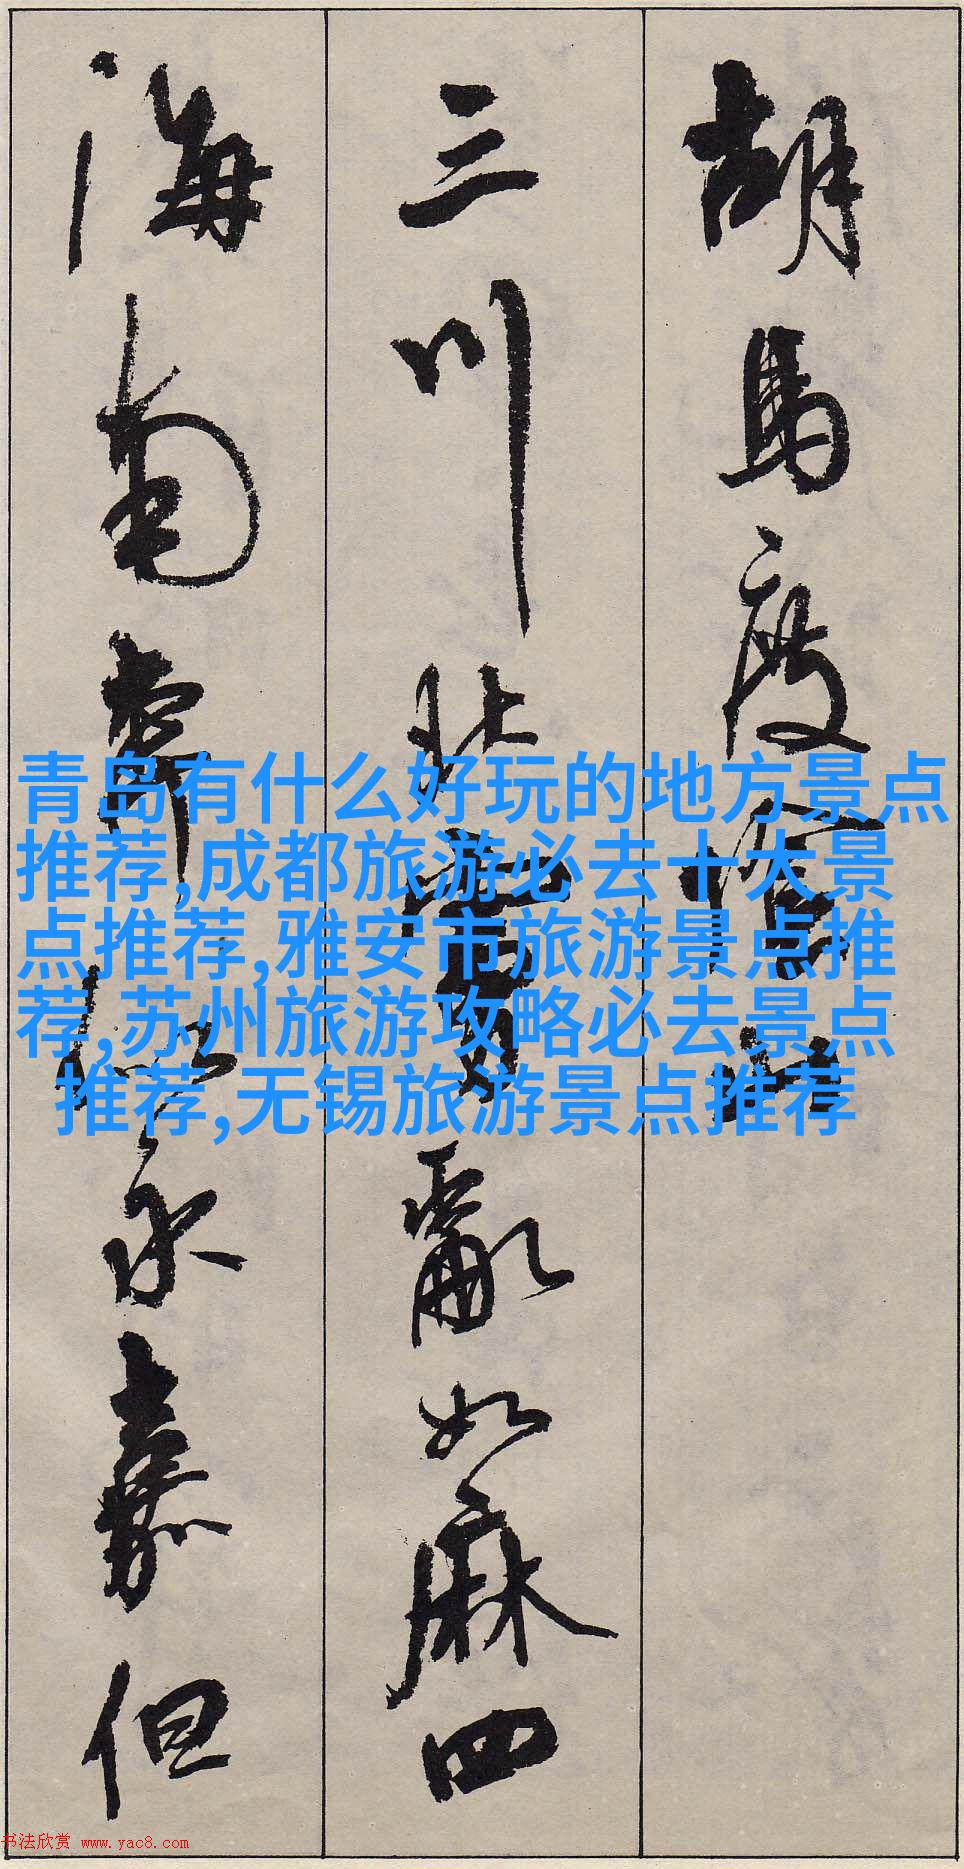 胡馬度陰山
三川北虜亂如麻四
海南奔似永嘉但
青岛有什么好玩的地方景点
推荐,成都旅游必去十大景
点推荐,雅安市旅游景点推
荐,苏州旅游攻略必去景点
推荐,无锡旅游景点推荐
书法欣赏 www.yac8.com